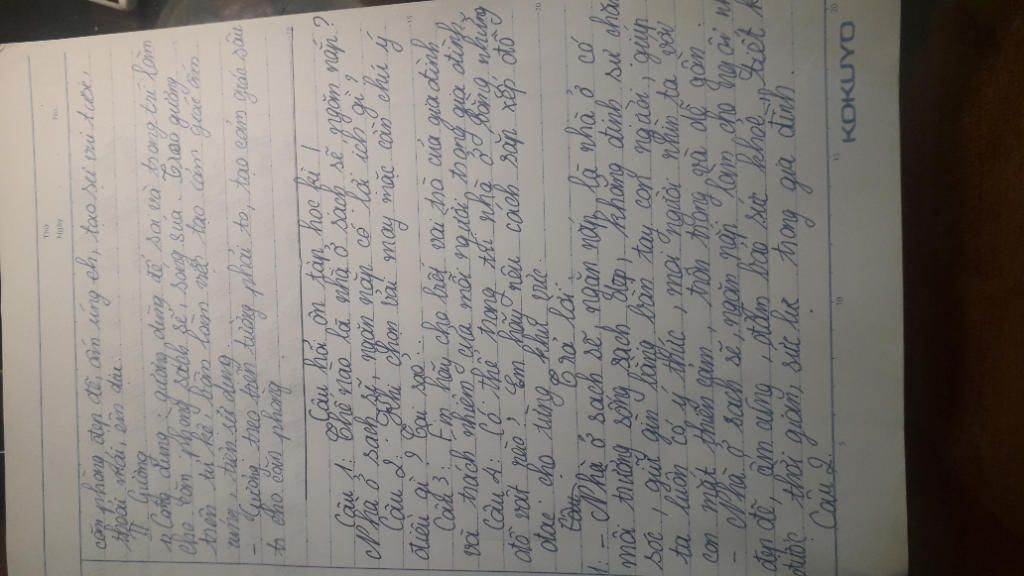 Thứ
Ngày
No.
căn phòng đẹp đẽ, ấm cúng ch, tạo sự vui tươi
thoải mái, ấn dịu.
II, Gương
1. Công dụng: gương dùng để soi và trang trí làm
cho căn phòng sạch sẽ, sáng sủa. Treo gương
trên tủ kệ, bàn làm việc tạo cảm giác ấm
cúng, tiện sử dụng
- Gương treo trên tường phải to, tạo cảm giác sâu
to cho căn phòng
Câu hỏi ôn tập học kì!
Câu 1: Thế nào là nhà ở sạch sẽ ngăn nắp?
Nhà ở sạch sẽ, ngăn nắp có lợi ích gì?
Câu 2: Khi chọn vải may mặc cần chú ý
điều gì? Tại sao?
Câu 3: Em hãy cho biết vai trò của gia đình
và trách nhiệm của mỗi người trong gia đình.
Câu 4: Có thể trang trí nhà ở bằng những
đồ vật nào? Em hãy nêu cách sắp xếp đồ
đạc cho từng khu vực.
Trả lời
1: - Nhà ở sạch sẽ, ngăn nắp là nhà ở có
môi trường sống sạch, đẹp, khẳng định sự chăm
sóc, giữ gìn bằng bàn tay con người, giúp
ta luôn có ý thức, mọi người nhìn ta với
con mắt thiện cảm, trân trọng và dễ gần
- Nhà ở sạch sẽ, ngăn nắp làm cho ngôi nhà
đẹp đẽ, ấm cúng, đảm bảo sức khoẻ, tiết k
được thời gian, sức lực trong gia đình.
Câu 2
KOKUYO
5
10
15
20